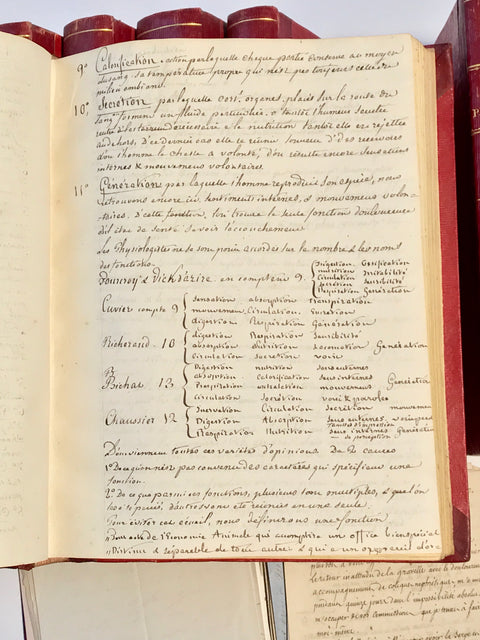 9° Calorification. action par laquelle chaque partie conserve au moyen
du sang sa température propre qui n'est pas toujours celle du
milieu ambiant.
10° Secretion par laquelle cert. organes, placés sur la route du
sang forment un fluide particulier, tantôt l'humeur secrétée
rentre nécessaire a la nutrition tantôt elle est rejettée
au dehors, d. ce dernier cas elle se réunit souvent d. des reservoirs
dont l'homme la chasse a volonté, d'où résulte encore sensations
internes & mouvements volontaires.
11° Génération par laquelle l'homme reproduit son espèce, nous
retrouvons encore ici sentiments internes, & mouvemens volon-
-taires. d. cette fonction, l'on trouve la seule fonction douloureuse
d. l'état de santé savoir l'accouchement
Les Physiologistes ne se sont point accordés sur le nombre & les noms
des fonctions.
Fourcroy & Vickdazire en comptent 9
Digestion Ossification
nutrition irritabilité
Circulation sensibilité
secretion
Respiration Génération
Cuvier compte 9
sensation absorption transpiration
mouvement Circulation
digestion Respiration Génération
Richerand 10
digestion Respiration Sensibilité
absorption Nutrition Locomotion Génération
Circulation secretion voix
Bichat 13
Digestion nutrition sens externes
absorption Calorification sens internes Génération
Respiration exhalation mouvement
Circulation Secrétion voix & paroles
Chaussier 12
Innervation Circulation secrétion mouvement
Digestion Absorption sens externes
Respiration Nutrition sens internes Génération
de perception
D'où viennent toutes ces variétés d'opinions De 2 causes
1° De ce qu'on n'est pas convenu des caractères qui spécifient une
fonction.
2° De ce que parmi ces fonctions, plusieurs sont multiples, & que l'on
d'autres ont été réunies en une seule.
Pour éviter cet écueil, nous définirons une fonction
Tout acte de l'Economie Animale qui accomplit un office bien spécial
Distinct & séparable de tout autre & qui a un appareil d'or
le retour inattendu de la gravelle avec le douloureux
accompagnement de coliques néphrétiques, m'a mis
pendant quinze jours dans l'impossibilité absolue
que je tenais à faire
moi-même.